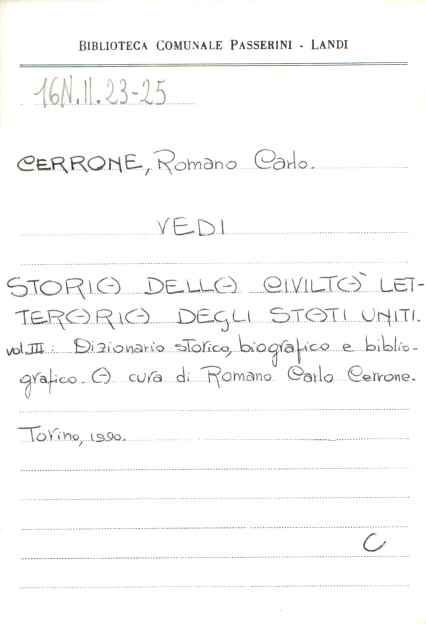 BIBLIOTECA COMUNALE PASSERINI - LANDI
16N.II.23-25
CERRONE, Romano Carlo.
VEDI
STORIA DELLA CIVILTÀ LET-
TERARIA DEGLI STATI UNITI.
vol.III: Dizionario storico, biografico e biblio-
grafico. A cura di Romano Carlo Cerrone.
Torino, 1990.
C